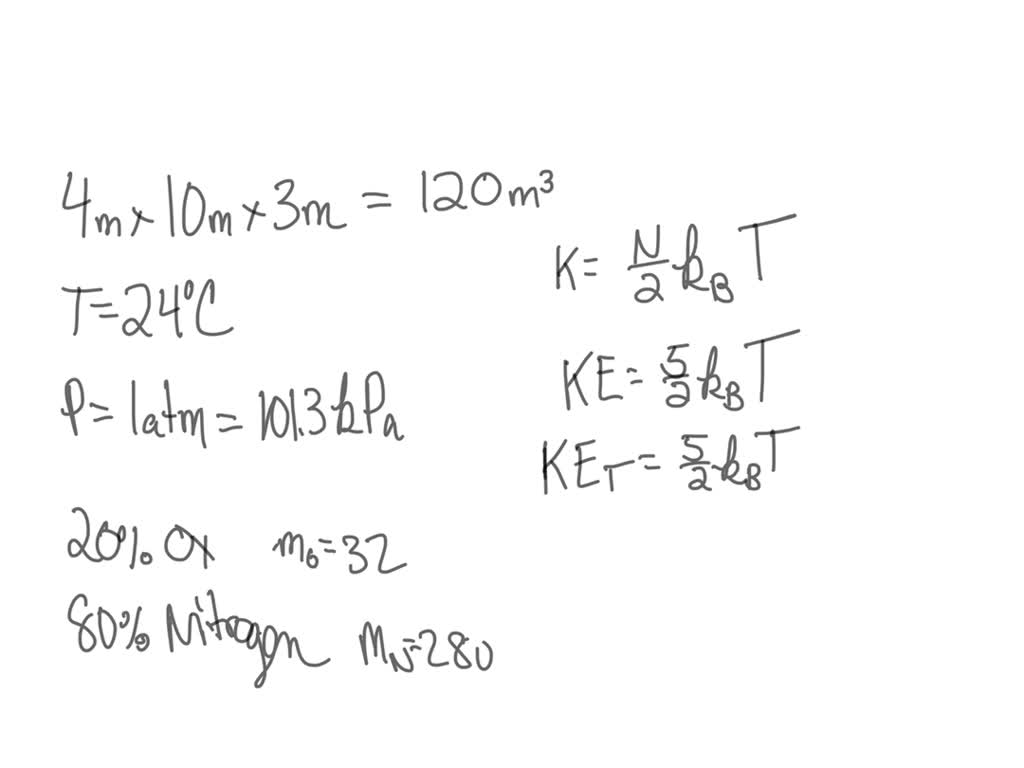 4m x 10m x 3m = 120m³
T=24°C
P= 1atm = 101.3kPa
20% Ox m₀=32
80% Nitrogen m_N=280
K= N/2 k_B T
KE= 5/2 k_B T
KE_T= 5/2 k_B T